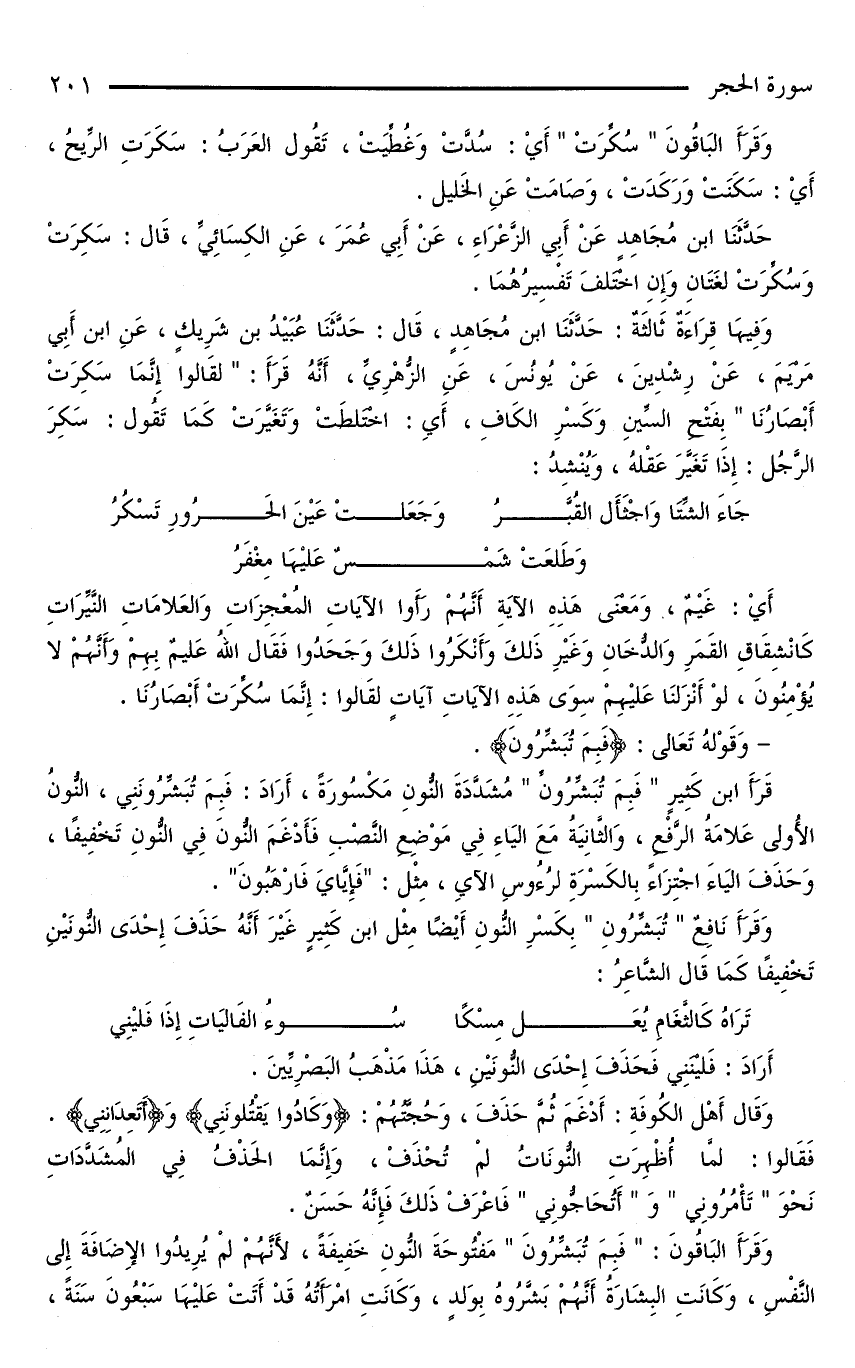 سورة الحجر ٢٠١
وَقَرَأَ البَاقُونَ " سُكِّرَتْ " أَيْ : سُدَّتْ وَغُطِّيَتْ ، تَقُول العَرَبُ : سَكَرَتِ الرِّيحُ ،
أَيْ : سَكَنَتْ وَرَكَدَتْ ، وَصَامَتْ عَنِ الخَليل .
حَدَّثَنَا ابن مُجَاهِدٍ عَنْ أَبي الزَّعْرَاءِ ، عَنْ أَبي عُمَرَ ، عَنِ الكِسَائِيِّ ، قَال : سَكِرَتْ
وَسُكِّرَتْ لغَتَانِ وَإِنِ اخْتَلفَ تَفْسِيرُهُمَا .
وَفِيهَا قِرَاءَةٌ ثَالثَةٌ : حَدَّثَنَا ابن مُجَاهِدٍ ، قَال : حَدَّثَنَا عُبَيْدُ بن شَرِيكٍ ، عَنِ ابن أَبي
مَرْيَمَ ، عَنْ رِشْدِينَ ، عَنْ يُونُسَ ، عَنِ الزُّهْرِيِّ ، أَنَّهُ قَرَأَ : " لقَالوا إِنَّمَا سَكِرَتْ
أَبْصَارُنَا " بِفَتْحِ السِّينِ وَكَسْرِ الكَافِ ، أَي : اخْتَلطَتْ وَتَغَيَّرَتْ كَمَا تَقُول : سَكِرَ
الرَّجُل : إِذَا تَغَيَّرَ عَقْلهُ ، وَيُنْشِدُ :
جَاءَ الشِّتَا وَاجْثَأَل القُبَّرُ وَجَعَلتْ عَيْنَ الحَرُورِ تَسْكُرُ
وَطَلعَتْ شَمْسٌ عَليْهَا مِغْفَرُ
أَيْ : غَيْمٌ ، وَمَعْنَى هَذِهِ الآيَةِ أَنَّهُمْ رَأَوا الآيَاتِ المُعْجِزَاتِ وَالعَلامَاتِ النَّيِّرَاتِ
كَانْشِقَاقِ القَمَرِ وَالدُّخَانِ وَغَيْرِ ذَلكَ وَأَنْكَرُوا ذَلكَ وَجَحَدُوا فَقَال اللهُ عَليمٌ بِهِمْ وَأَنَّهُمْ لا
يُؤْمِنُونَ ، لوْ أَنْزَلنَا عَليْهِمْ سِوَى هَذِهِ الآيَاتِ آيَاتٍ لقَالوا : إِنَّمَا سُكِّرَتْ أَبْصَارُنَا .
– وَقَوْلهُ تَعَالى : ﴿فَبِمَ تُبَشِّرُونَ﴾ .
قَرَأَ ابن كَثِيرٍ " فَبِمَ تُبَشِّرُونِّ " مُشَدَّدَةَ النُّونِ مَكْسُورَةً ، أَرَادَ : فَبِمَ تُبَشِّرُونَنِي ، النُّونُ
الأُولى عَلامَةُ الرَّفْعِ ، وَالثَّانِيَةُ مَعَ اليَاءِ فِي مَوْضِعِ النَّصْبِ فَأَدْغَمَ النُّونَ فِي النُّونِ تَخْفِيفًا ،
وَحَذَفَ اليَاءَ اجْتِزَاءً بِالكَسْرَةِ لرُءُوسِ الآيِ ، مِثْل : "فَإِيَّايَ فَارْهَبُونَ" .
وَقَرَأَ نَافِعٌ " تُبَشِّرُونِ " بِكَسْرِ النُّونِ أَيْضًا مِثْل ابن كَثِيرٍ غَيْرَ أَنَّهُ حَذَفَ إِحْدَى النُّونَيْنِ
تَخْفِيفًا كَمَا قَال الشَّاعِرُ :
تَرَاهُ كَالثَّغَامِ يُعَل مِسْكًا سُوءُ الفَاليَاتِ إِذَا فَليْنِي
أَرَادَ : فَليْنَنِي فَحَذَفَ إِحْدَى النُّونَيْنِ ، هَذَا مَذْهَبُ البَصْرِيِّينَ .
وَقَال أَهْل الكُوفَةِ : أَدْغَمَ ثُمَّ حَذَفَ ، وَحُجَّتُهُمْ : ﴿وَكَادُوا يَقْتُلونَنِي﴾ وَ﴿أَتَعِدَانِنِي﴾ .
فَقَالوا : لمَّا أُظْهِرَتِ النُّونَاتُ لمْ تُحْذَفْ ، وَإِنَّمَا الحَذْفُ فِي المُشَدَّدَاتِ
نَحْوَ " تَأْمُرُونِي " وَ " أَتُحَاجُّونِي " فَاعْرَفْ ذَلكَ فَإِنَّهُ حَسَنٌ .
وَقَرَأَ البَاقُونَ : " فَبِمَ تُبَشِّرُونَ " مَفْتُوحَةَ النُّونِ خَفِيفَةً ، لأَنَّهُمْ لمْ يُرِيدُوا الإِضَافَةَ إِلى
النَّفْسِ ، وَكَانَتِ البِشَارَةُ أَنَّهُمْ بَشَّرُوهُ بِوَلدٍ ، وَكَانَتِ امْرَأَتُهُ قَدْ أَتَتْ عَليْهَا سَبْعُونَ سَنَةً ،